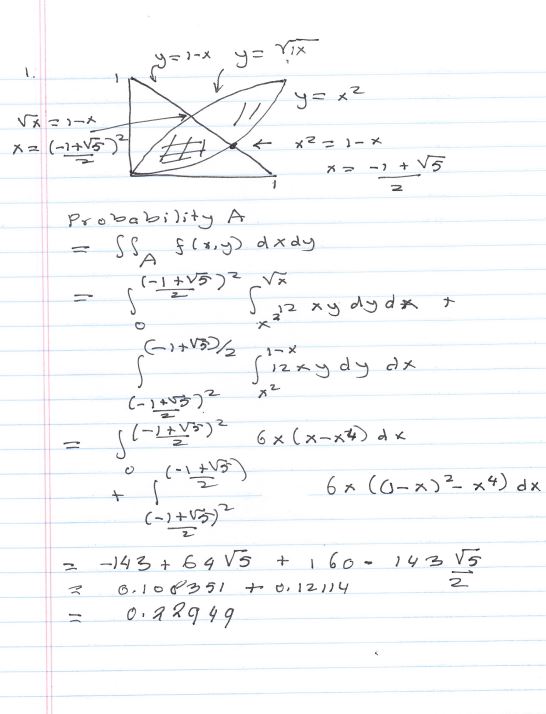 1.
1
y = 1-x
y = √x
y = x²
√x = 1-x
x = ((-1+√5)/2)²
x² = 1-x
x = (-1+√5)/2
1
Probability A
= ∫∫_A f(x,y) dxdy
= ∫_0^((-1+√5)/2)² ∫_x²^√x 12 xy dy dx +
∫_((-1+√5)/2)²^(-1+√5)/2 ∫_x²^1-x 12xy dy dx
= ∫_0^((-1+√5)/2)² 6x(x-x⁴) dx
+ ∫_((-1+√5)/2)²^((-1+√5)/2) 6x ((1-x)²-x⁴) dx
= -143 + 64√5 + 160 - 143 √5/2
= 0.108351 + 0.12114
= 0.22949